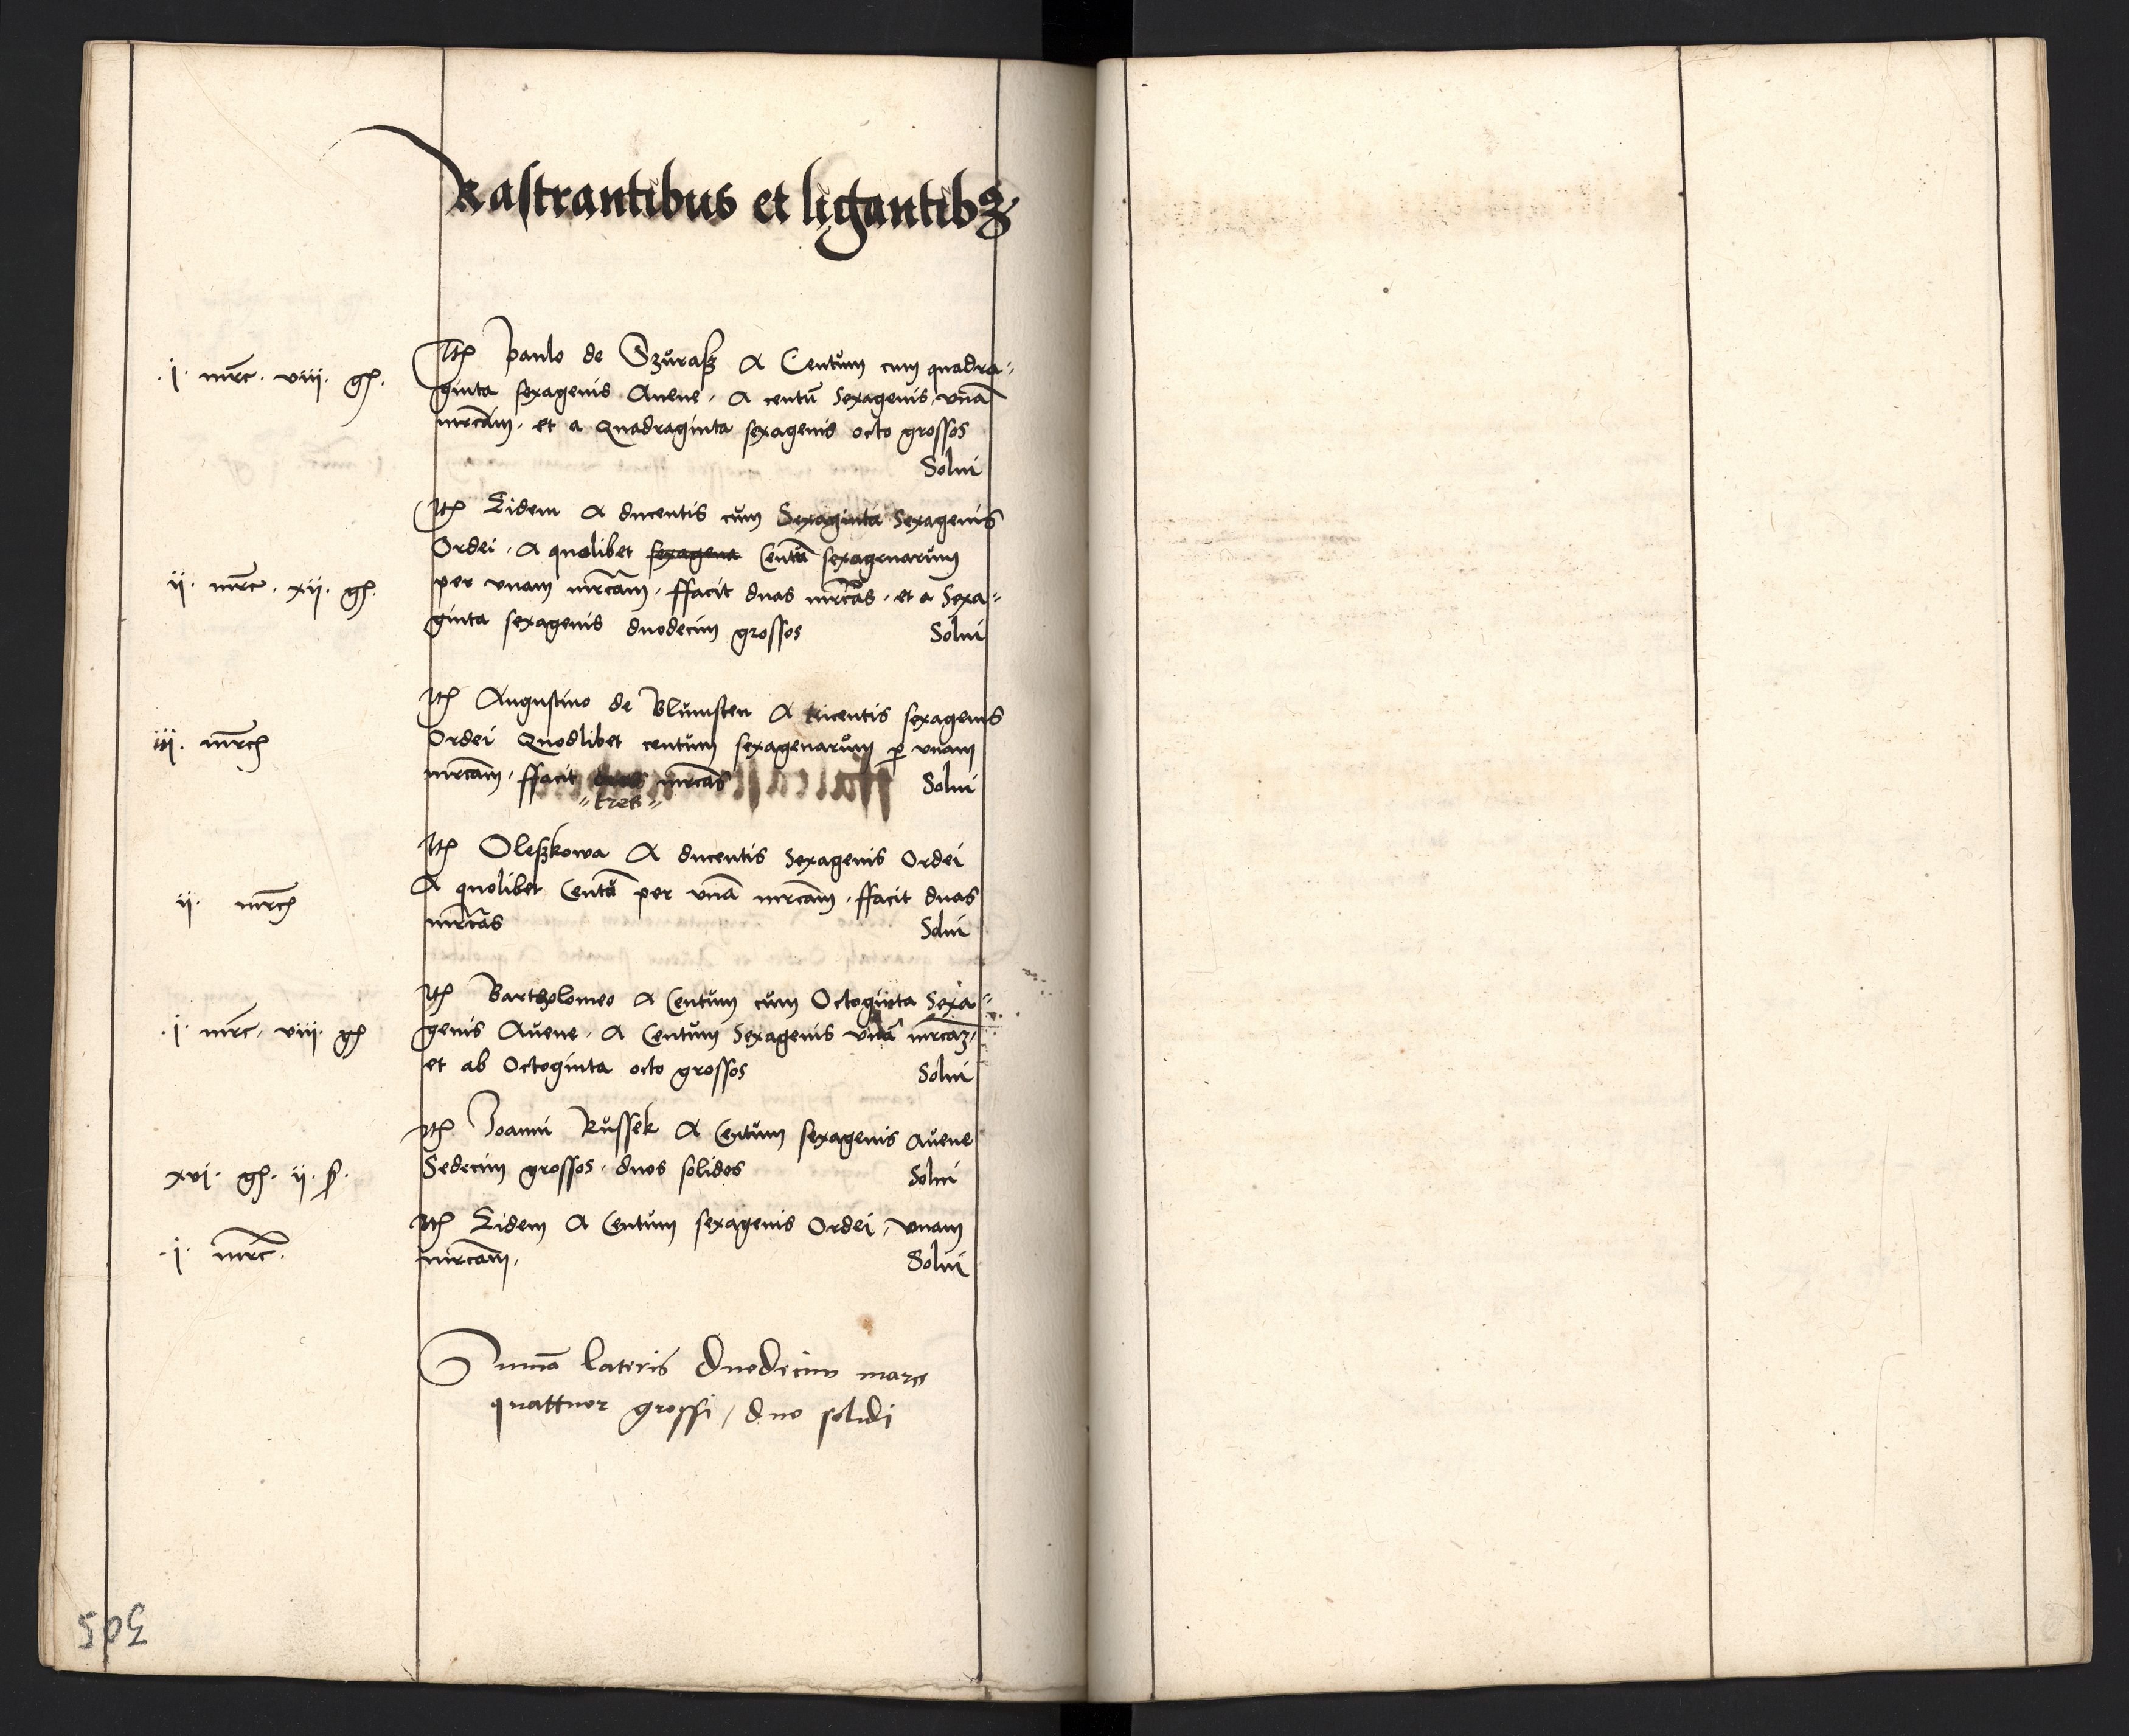 Rastrantibus et ligantibꝫ
.j. mrc. viii. gr.
Itm paulo de Szuraß A Centum cum quadra„
ginta sexagenis Auene, A centū Sexagenis, vnā
mrcam, et a Quadraginta sexagenis octo grossos
Solui
Itm Eidem A ducentis cum Sexaginta Sexagenis
Ordei, A quolibet sexagena Centū sexagenarum
ii. mrc. xii. gr.
per vnam mrcam, ffacit duas mrcas, et a Sexa„
ginta sexagenis duodecim grossos Solui
Itm Augustino de Blumsten A tricentis sexagenis
iii. mrc
Ordei Quodlibet centum sexagenarum ꝑ vnam
mrcam, ffacit duas mrcas Solui
„tres„
Itm Oleßkowa A ducentis Sexagenis Ordei
ii. mrc
A quolibet Centū per vnā mrcam, ffacit duas
mrcas Solui
Itm Bartholomeo A Centum cum Octoginta Sexa„
.j. mrc. viii. gr
genis Auene, A Centum Sexagenis vnā mrcaꝫ,
et ab Octoginta octo grossos Solui
Itm Joanni Russek A Centum sexagenis auene
xvi. gr. ii. ß.
Sedecim grossos, duos solidos Solui
Itm Eidem A Centum sexagenis Ordei, vnam
.j. mrc.
mrcam, Solui
Summa lateris Duodecim marc
quattuor grossi / duo solidi
305